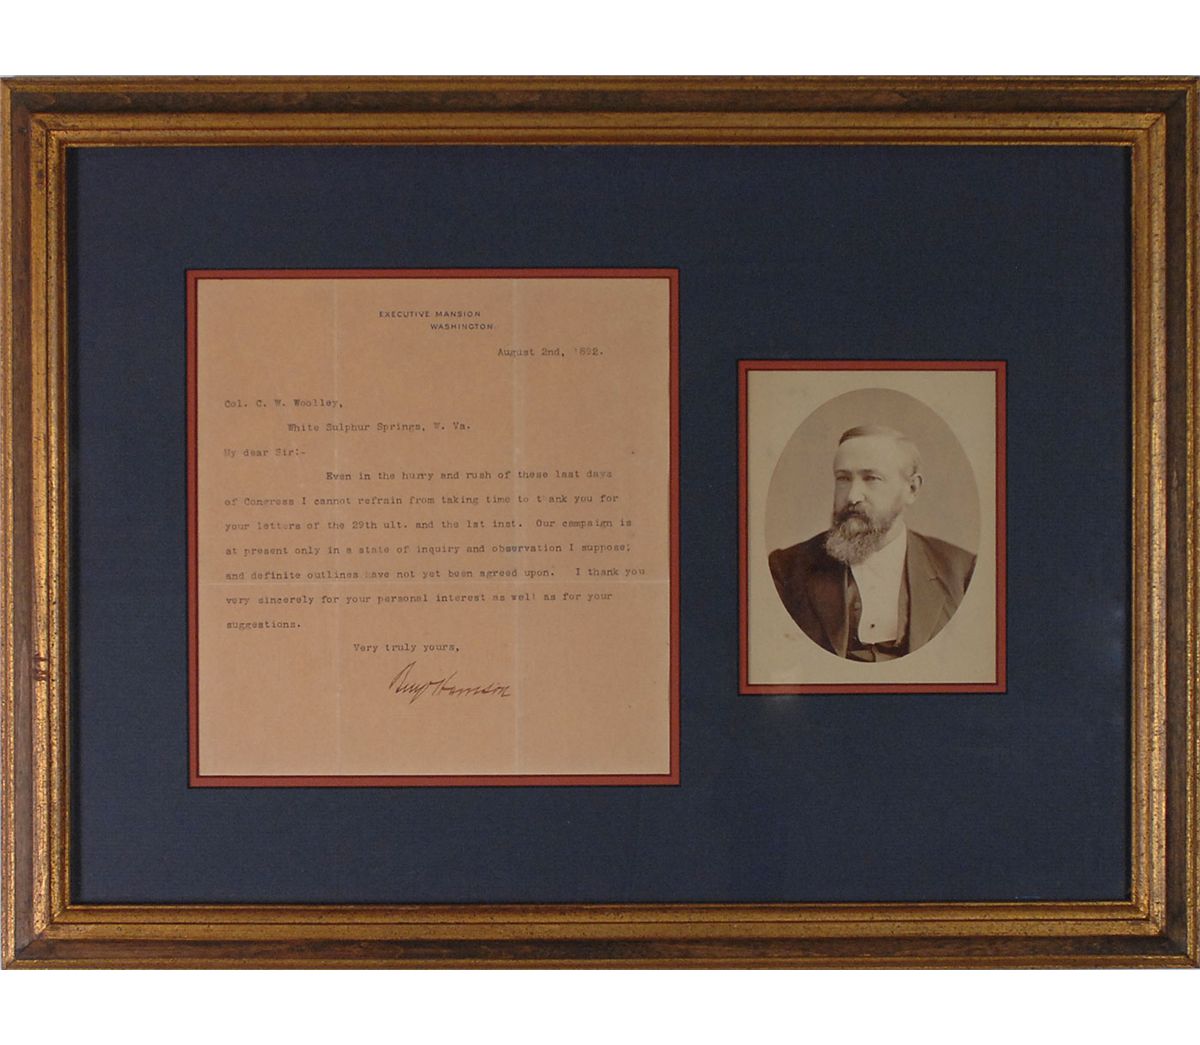 EXECUTIVE MANSION
WASHINGTON
August 2nd, 1892.
Col. C. W. Woolley,
White Sulphur Springs, W. Va.
My dear Sir:-
Even in the hurry and rush of these last days
of Congress I cannot refrain from taking time to thank you for
your letters of the 29th ult. and the 1st inst. Our campaign is
at present only in a state of inquiry and observation I suppose;
and definite outlines have not yet been agreed upon. I thank you
very sincerely for your personal interest as well as for your
suggestions.
Very truly yours,
Benj Harrison